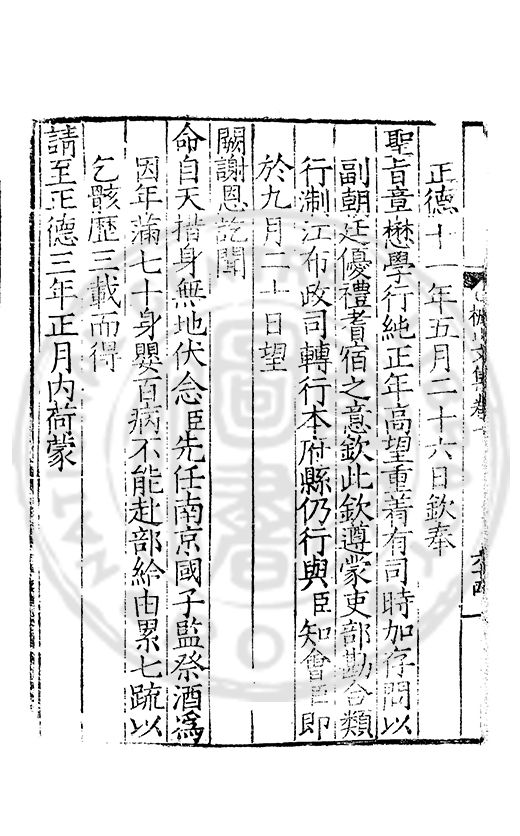 正德十一年五月二十六日欽奉
聖旨章懋學行純正年高望重着有司時加存問以
副朝廷優禮耆宿之意欽此欽遵蒙吏部勘合類
行浙江布政司轉行本府縣仍行與臣知會臣即
於九月二十日望
闕謝恩訖聞
命自天措身無地伏念臣先任南京國子監祭酒爲
因年滿七十身嬰百病不能赴部給由累七疏以
乞骸歷三載而得
請至正德三年正月內荷蒙
楓山文集卷一